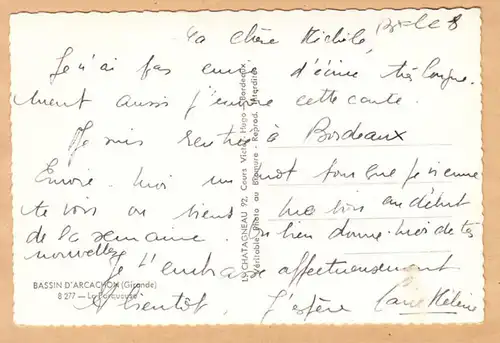 Ma chère Michèle, Bx le 8
Je n'ai pas envie d'écrire très longue-
ment aussi j'envoie cette carte.
Je suis rentrée à Bordeaux
Envoie-moi un mot pour que je vienne
te voir ou viens me voir au début
de la semaine. Ou bien donne-moi de tes
nouvelles
Je t'embrasse affectueusement
A bientôt, j'espère Marie Hélène
BASSIN D'ARCACHON (Gironde)
8 277 —
CHATAGNEAU 92, Cours Victor Hugo - Bordeaux
Véritable Photo au Bromure - Reprod. Interdite